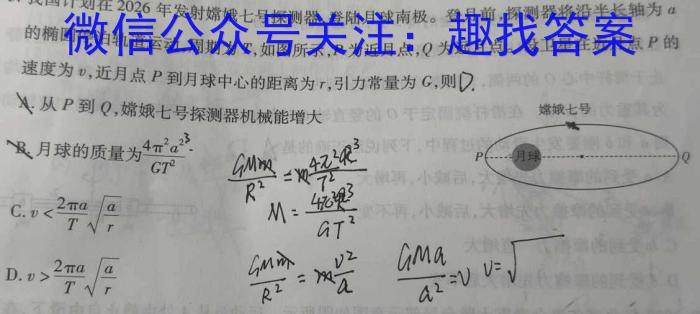 我国计划在 2026 年发射嫦娥七号探测器,登陆月球南极。登月前,探测器将沿半长轴为 a
微信公众号关注：趣找答案
的椭圆 运动,周期为 T,如图所示,P 为近月点,Q 为 P 的
速度为 v,近月点 P 到月球中心的距离为 r,引力常量为 G,则 D.
A. 从 P 到 Q,嫦娥七号探测器机械能增大
B. 月球的质量为 4π²a²³/GT².
C. v < 2πa/T √(a/r)
D. v > 2πa/T √(a/r)
嫦娥七号
P
月球
Q
GMm/R² = m 4π²R³/T²
M = 4π²R³/GT²
GMm/R² = m v²/a
GMa/a² = v v = √